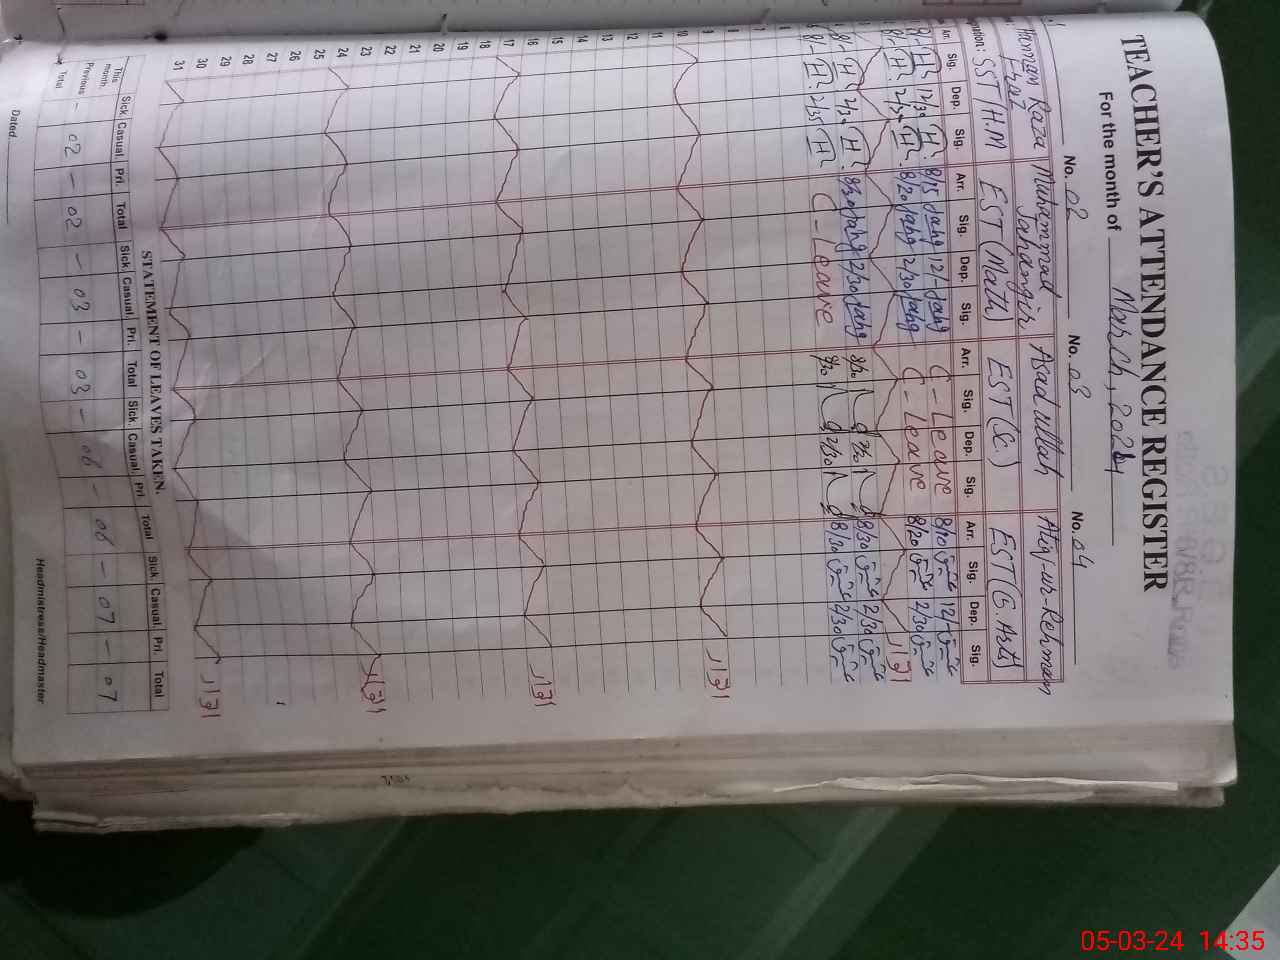 TEACHER'S ATTENDANCE REGISTER
For the month of March, 2024
No. 02 No. 03 No. 04
Raza Muhammad Jahangir Asad ullah Atiq-ur-Rehman
SST/H.M EST (Math) EST (Sc.) EST (G. Arts)
Arr. Sig. Dep. Sig. Arr. Sig. Dep. Sig. Arr. Sig. Dep. Sig. Arr. Sig. Dep. Sig.
8/- 12/30 8/15 12/- C - Leave 8/20 12/-
8/- 2/30 8/20 2/30 C - Leave 8/20 2/30
اتوار
8/- 2/30 8/30 2/30 8/30 2/30 8/30 2/30
8/- 2/35 C - Leave 8/30 2/30 8/30 2/30
6
7
8
9
10 اتوار
11
12
13
14
15
16
17 اتوار
18
19
20
21
22
23
24 اتوار
25
26
27
28
29
30
31 اتوار
STATEMENT OF LEAVES TAKEN.
Sick. Casual. Pri. Total Sick. Casual. Pri. Total Sick. Casual. Pri. Total Sick. Casual. Pri. Total
This month.
Previous - 02 - 02 - 03 - 03 - 06 - 06 - 07 - 07
Total
Dated Headmistress/Headmaster
05-03-24 14:35